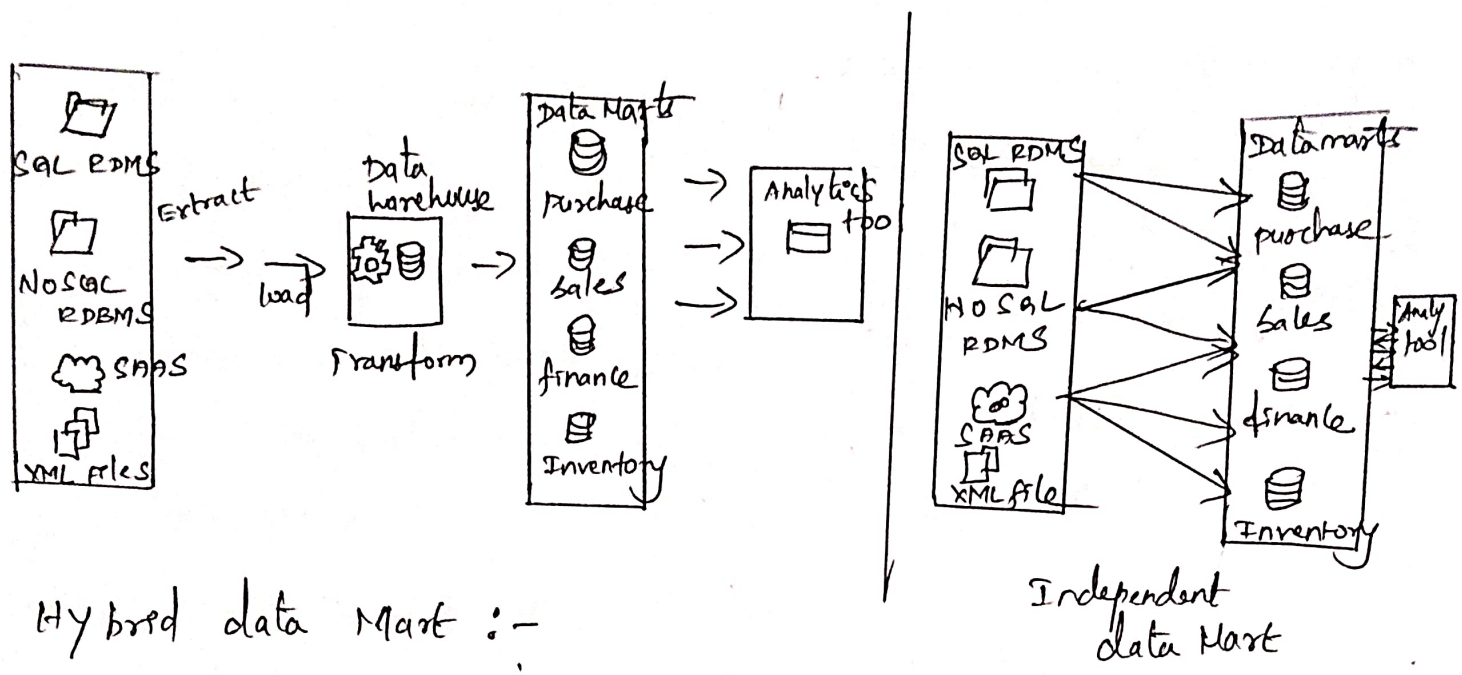 SQL RDMS
NOSQL
RDBMS
SAAS
XML files
Extract
load
Data
warehouse
Transform
Data Marts
purchase
sales
finance
Inventory
Analytics
too
SQL RDMS
NO SQL
RDMS
SAAS
XML file
Data marts
purchase
Sales
finance
Inventory
Analy
tool
Hybrid data Mart :-
Independent
data Mart